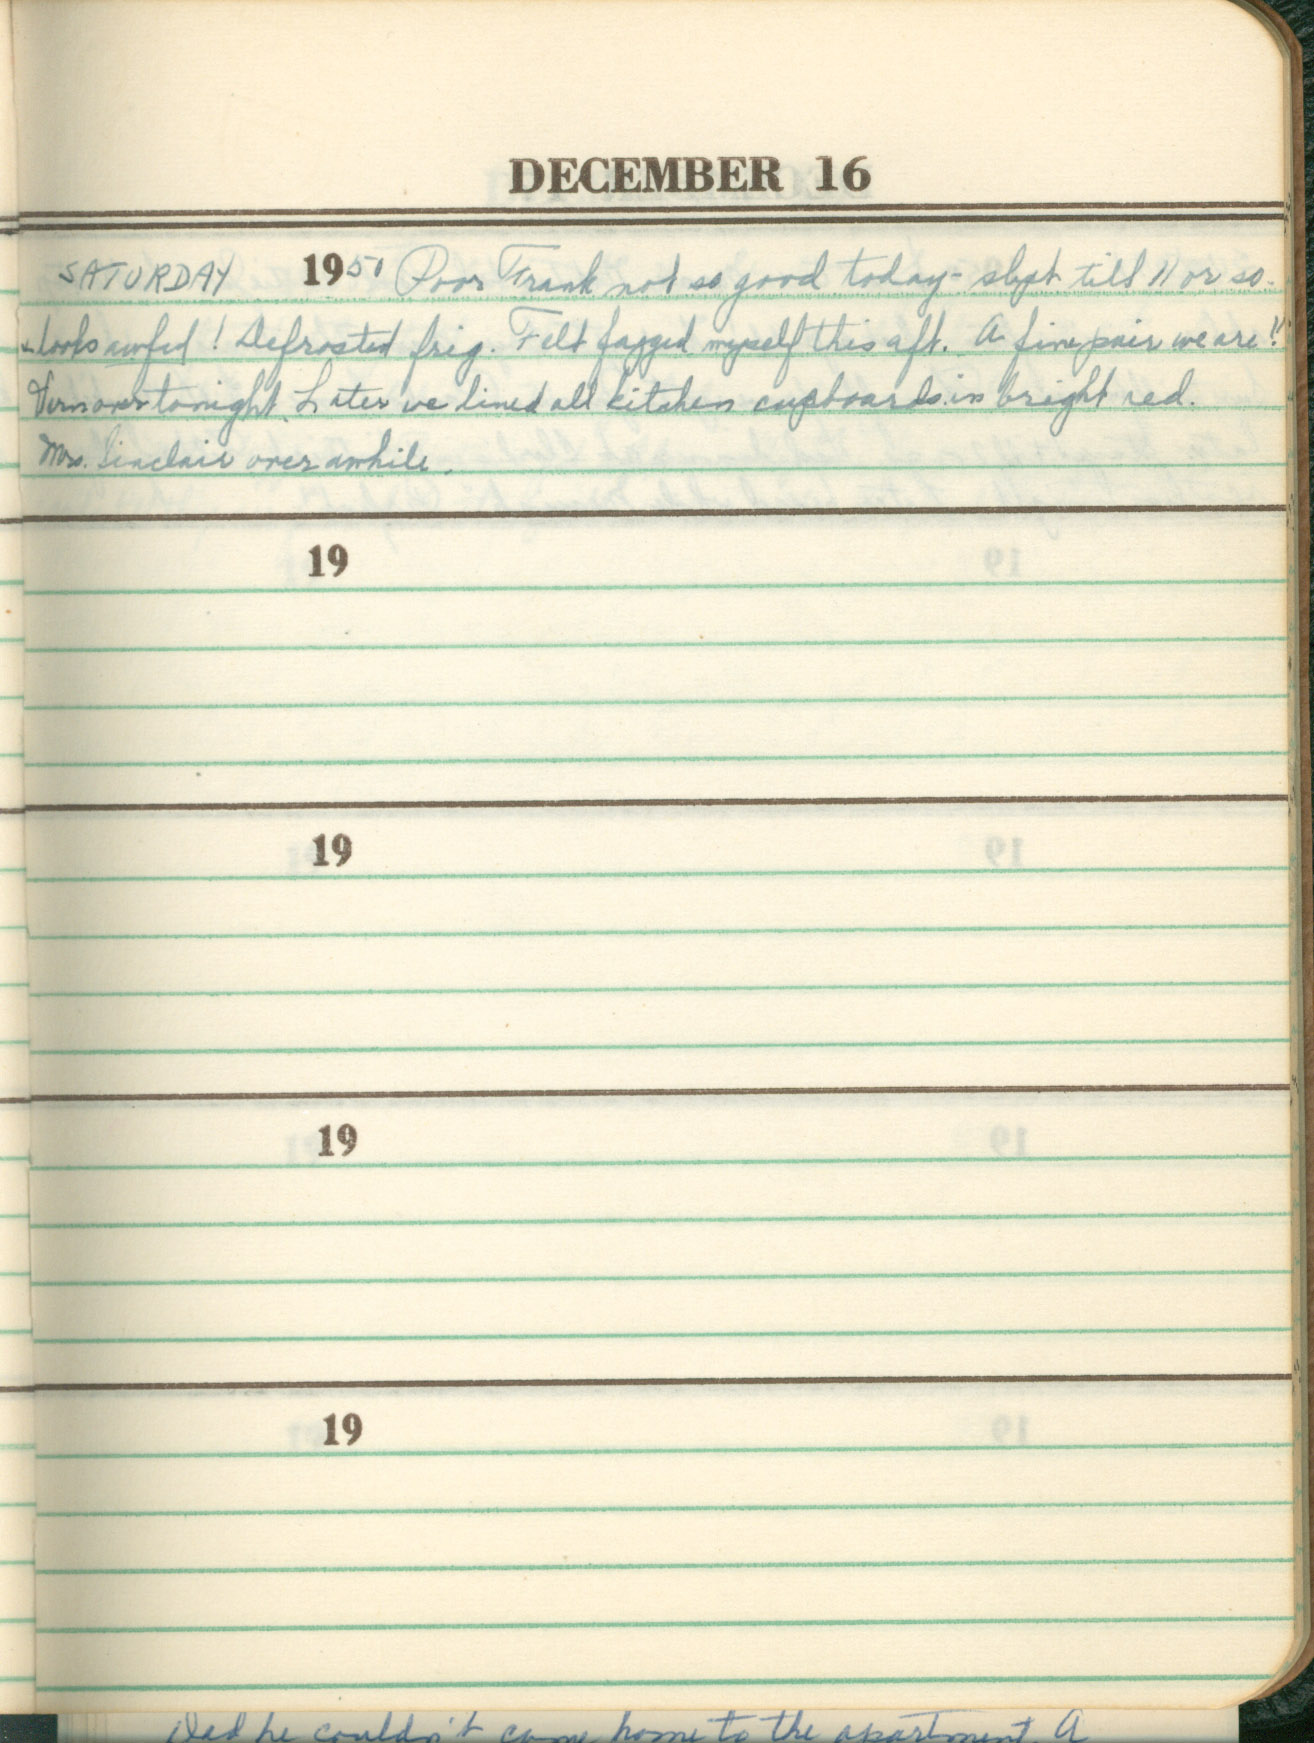 DECEMBER 16
SATURDAY 1950 Poor Frank not so good today - slept till 11 or so -
looks awful! Defrosted frig. Felt fagged myself this aft. A fine pair we are!!
Vern over tonight. Later we lined all kitchen cupboards in bright red.
Mrs. Sinclair over awhile.
19
19
19
19
Dad he couldn't come home to the apartment. A